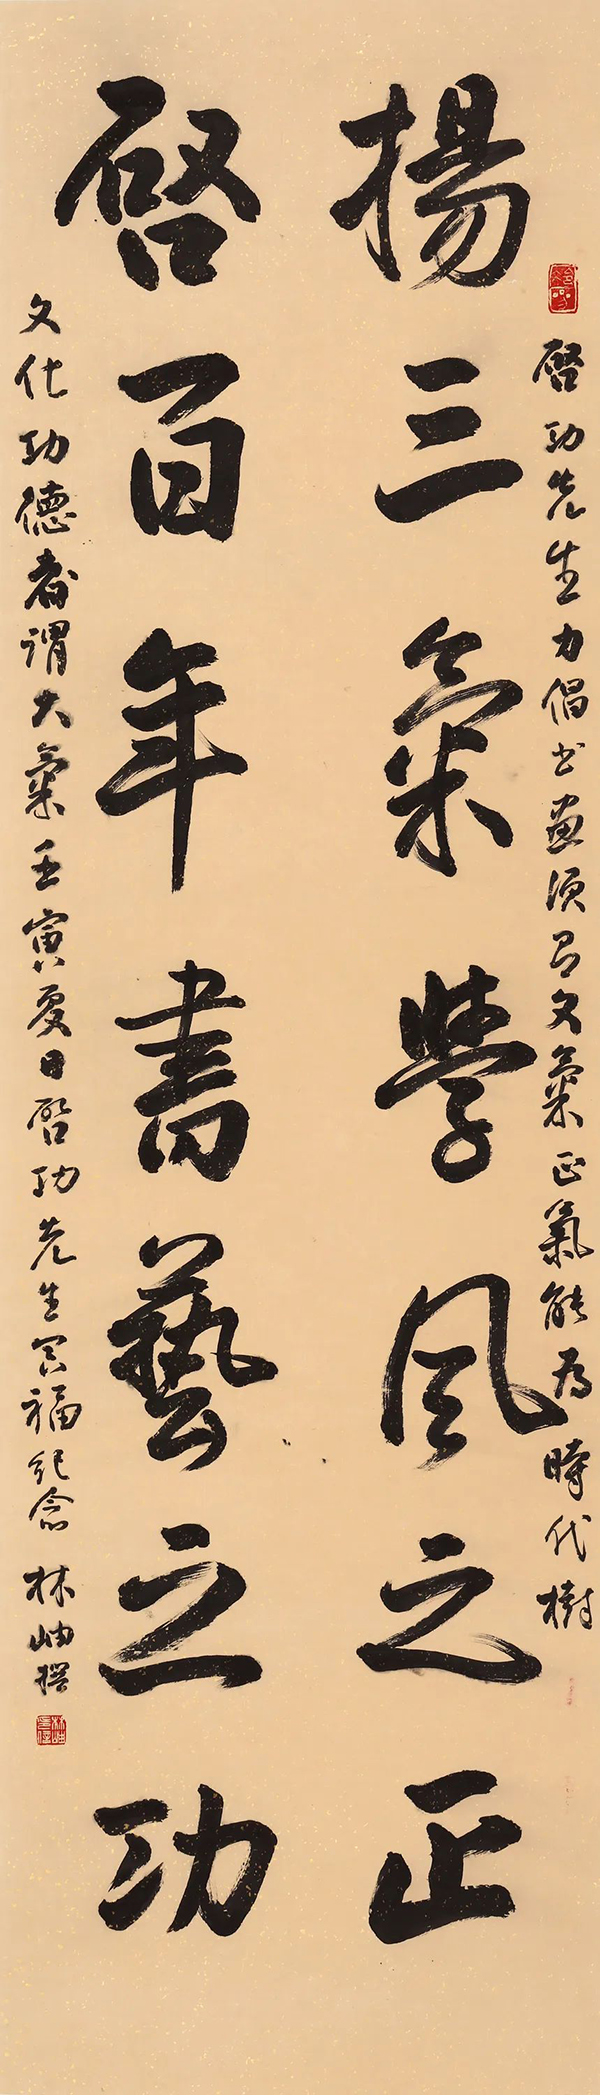 啓功先生力倡书畫须有文氣正氣能为時代樹
揚三氣學风之正
啓百年書藝之功
文化功德者谓大氣壬寅夏日啓功先生冥福纪念 林岫撰
林岫